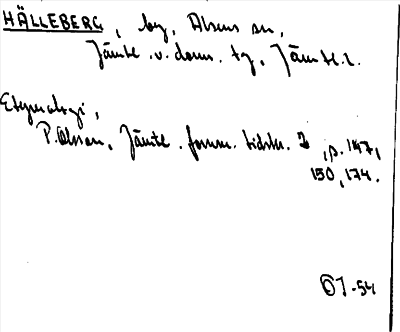 HÄLLEBERG, by, Alsens sn,
Jämtl. v. doms. tg, Jämtl. l.
Etymologi,
P. Olsson, Jämtl. fornm. tidskr. 2, p. 147,
150, 174.
OJ-54